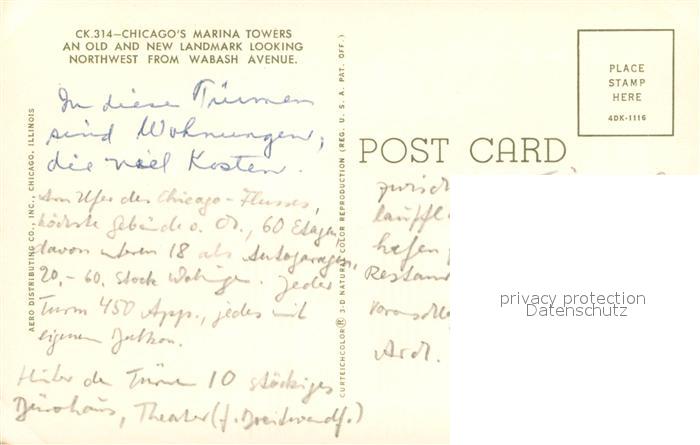 CK.314—CHICAGO'S MARINA TOWERS
AN OLD AND NEW LANDMARK LOOKING
NORTHWEST FROM WABASH AVENUE.
In diesen Türmen
sind Wohnungen,
die viel Kosten.
Am Ufer des Chicago-Flusses,
höchste Gebäude o. 60 Etagen,
davon unteren 18 als Autogaragen,
20.-60. Stock Jeder
Turm 450 App., jedes mit
eigenem Balkon.
Hinter den Türmen 10 stöckiges
Bürohaus, Theater (f.
AERO DISTRIBUTING CO., INC., CHICAGO, ILLINOIS
CURTEICHCOLOR® 3-D NATURAL COLOR REPRODUCTION (REG. U. S. A. PAT. OFF.)
POST CARD
PLACE
STAMP
HERE
4DK-1116
zwisch
hafen
Restau
privacy protection
Datenschutz